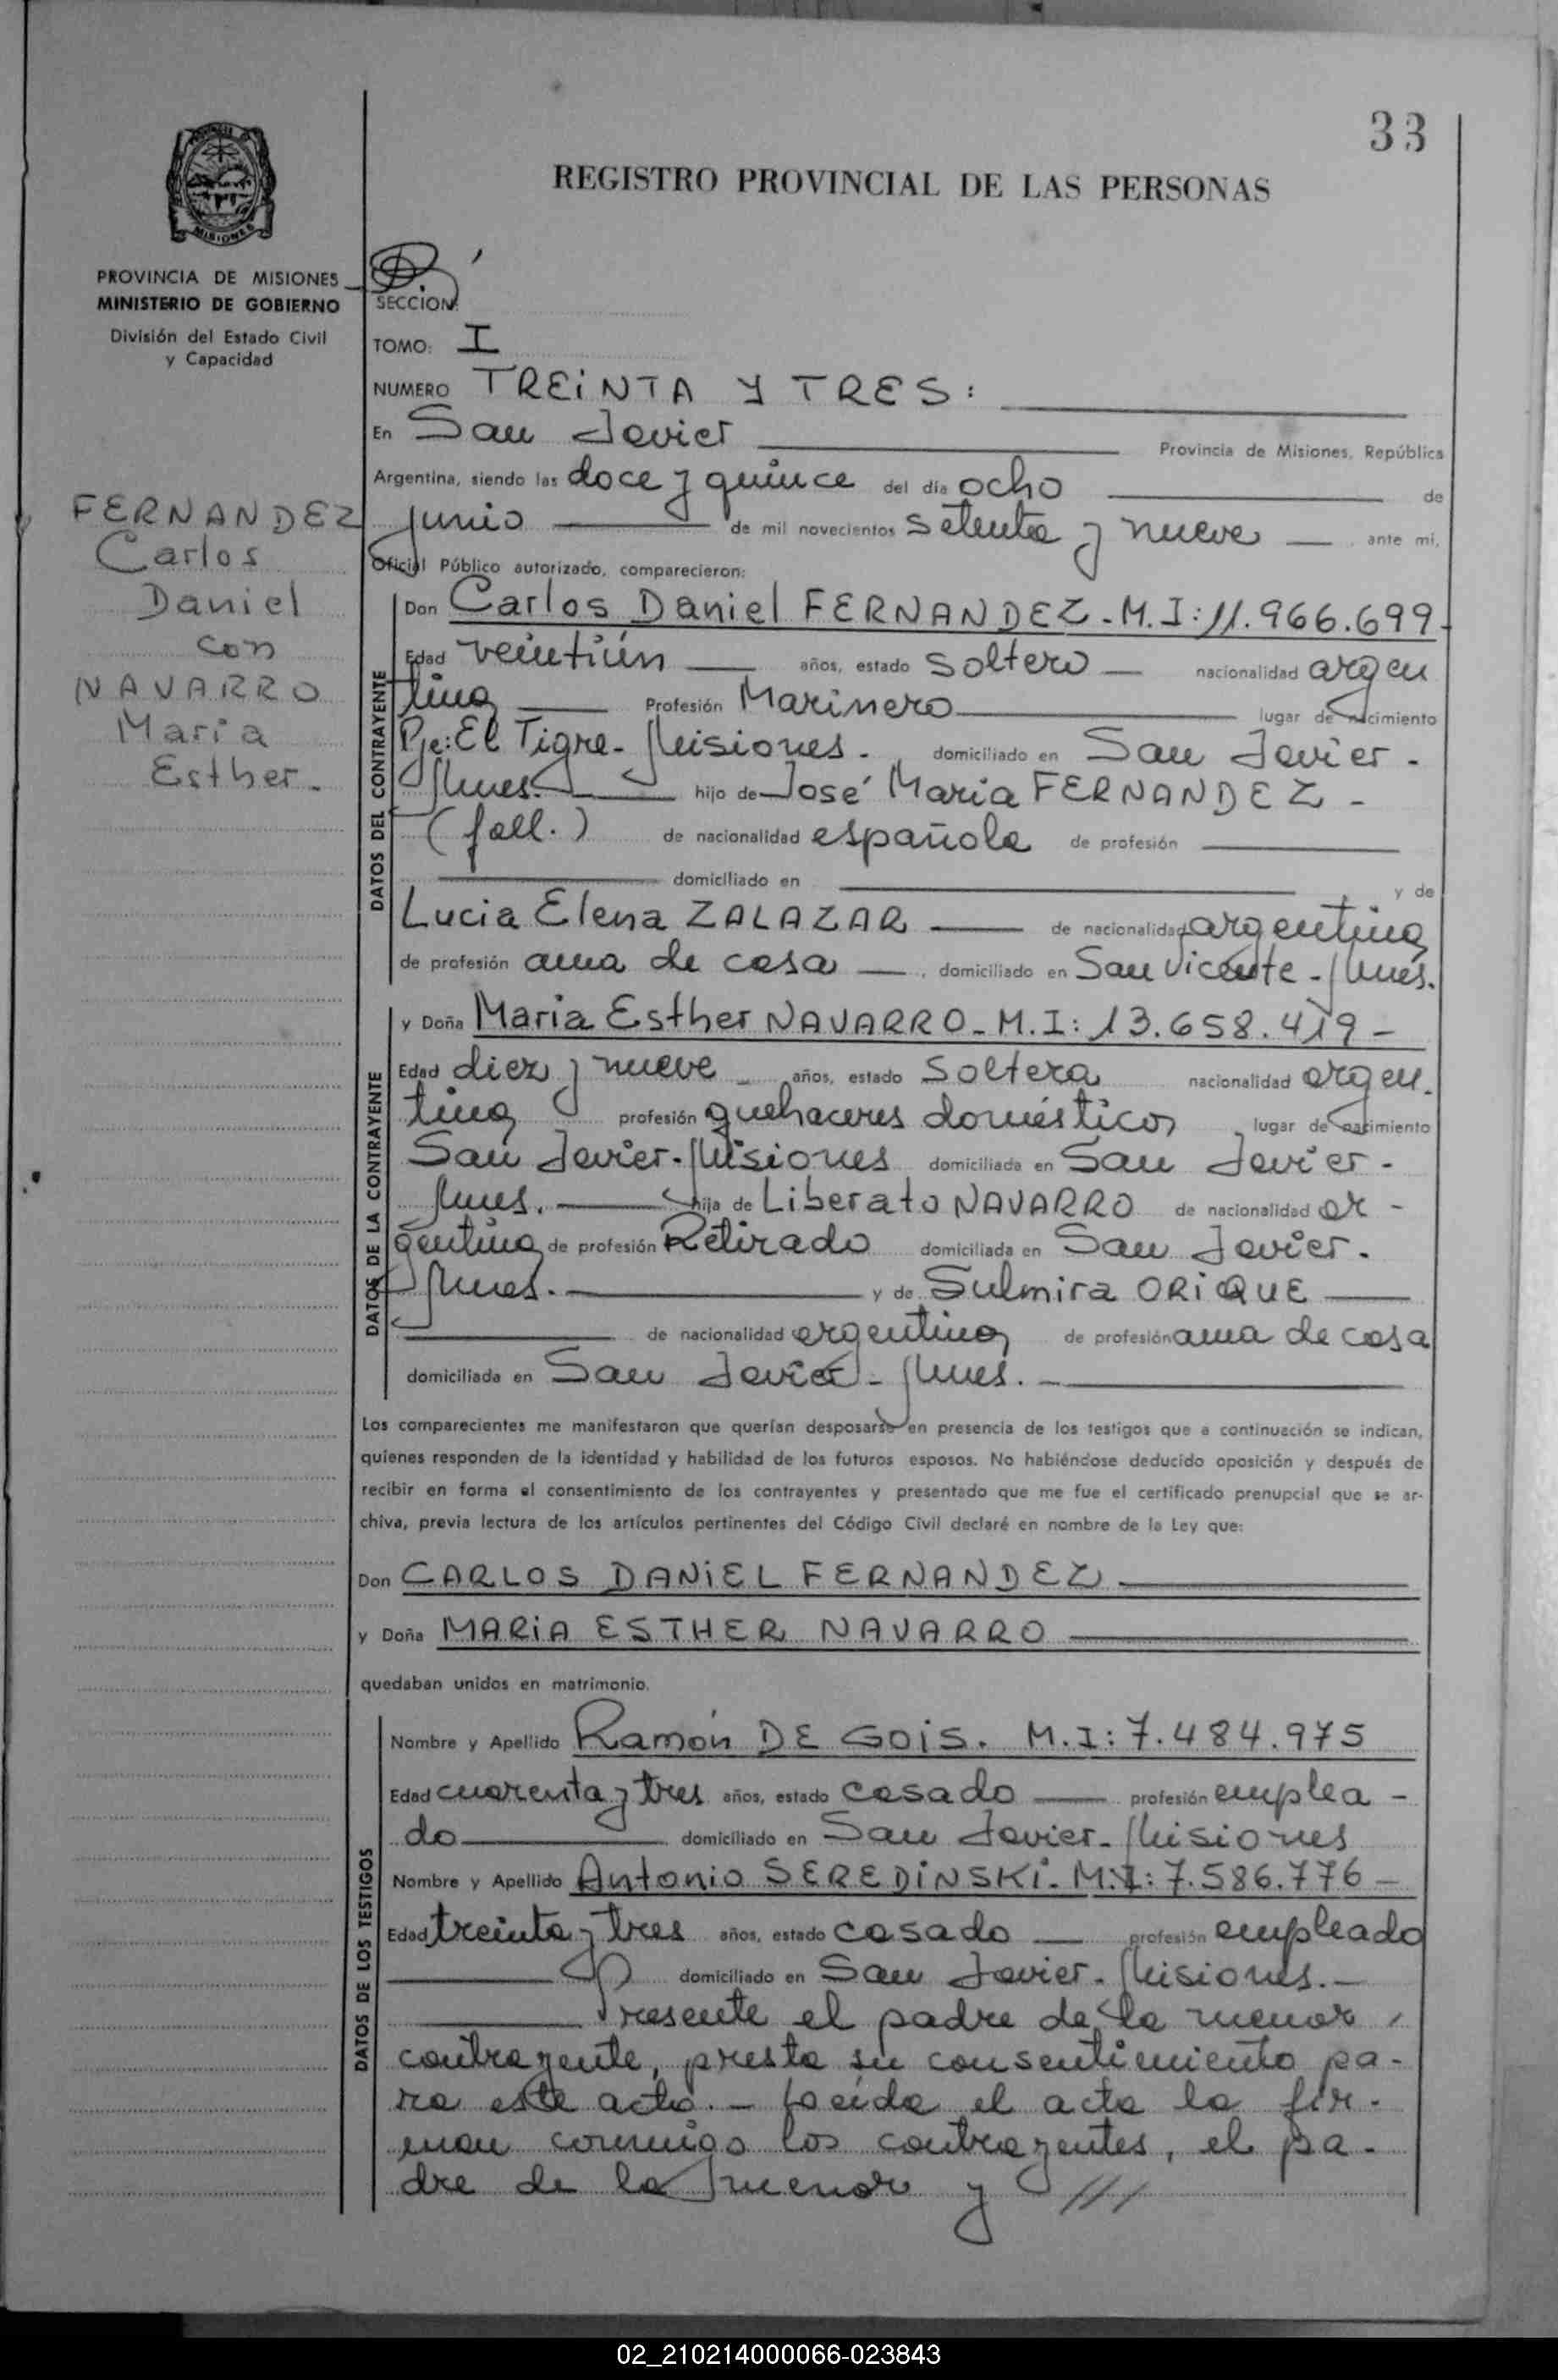 33
REGISTRO PROVINCIAL DE LAS PERSONAS
MISIONES
PROVINCIA DE MISIONES
MINISTERIO DE GOBIERNO
División del Estado Civil
y Capacidad
FERNANDEZ
Carlos
Daniel
con
NAVARRO
Maria
Esther.
SECCION:
TOMO: I
NUMERO TREINTA Y TRES:
En San Javier Provincia de Misiones, República
Argentina, siendo las doce y quince del día ocho de
junio de mil novecientos setenta y nueve ante mi,
Oficial Público autorizado, comparecieron:
DATOS DEL CONTRAYENTE
Don Carlos Daniel FERNANDEZ - M.I: 11.966.699-
Edad veintiún años, estado soltero nacionalidad argen
tina Profesión Marinero lugar de nacimiento
Pje: El Tigre - Misiones. domiciliado en San Javier -
Mnes. hijo de José Maria FERNANDEZ -
(fall.) de nacionalidad española de profesión
domiciliado en y de
Lucia Elena ZALAZAR de nacionalidad argentina
de profesión ama de casa , domiciliado en San Vicente - Mnes.
DATOS DE LA CONTRAYENTE
y Doña Maria Esther NAVARRO - M.I: 13.658.419 -
Edad diez y nueve años, estado soltera nacionalidad argen.
tina profesión quehaceres domésticos lugar de nacimiento
San Javier - Misiones domiciliada en San Javier -
Mnes. hija de Liberato NAVARRO de nacionalidad ar -
gentina de profesión Retirado domiciliada en San Javier.
Mnes. y de Sulmira ORIQUE
de nacionalidad argentina de profesión ama de casa
domiciliada en San Javier - Mnes.
Los comparecientes me manifestaron que querían desposarse en presencia de los testigos que a continuación se indican,
quienes responden de la identidad y habilidad de los futuros esposos. No habiéndose deducido oposición y después de
recibir en forma el consentimiento de los contrayentes y presentado que me fue el certificado prenupcial que se ar-
chiva, previa lectura de los artículos pertinentes del Código Civil declaré en nombre de la Ley que:
Don CARLOS DANIEL FERNANDEZ
y Doña MARIA ESTHER NAVARRO
quedaban unidos en matrimonio.
DATOS DE LOS TESTIGOS
Nombre y Apellido Ramón DE GOIS. M.I: 7.484.975
Edad cuarenta y tres años, estado casado profesión emplea -
do domiciliado en San Javier - Misiones
Nombre y Apellido Antonio SEREDINSKI. M.I: 7.586.776 -
Edad treinta y tres años, estado casado profesión empleado
domiciliado en San Javier - Misiones. -
Presente el padre de la menor
contrayente, presta su consentimiento pa-
ra este acto. - Leída el acta la fir-
man conmigo los contrayentes, el pa-
dre de la menor y ///
02_210214000066-023843